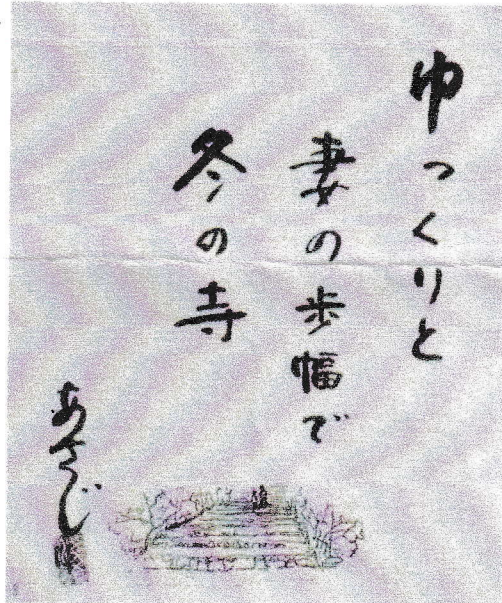 ゆっくりと
妻の歩幅で
冬の寺
あさじ